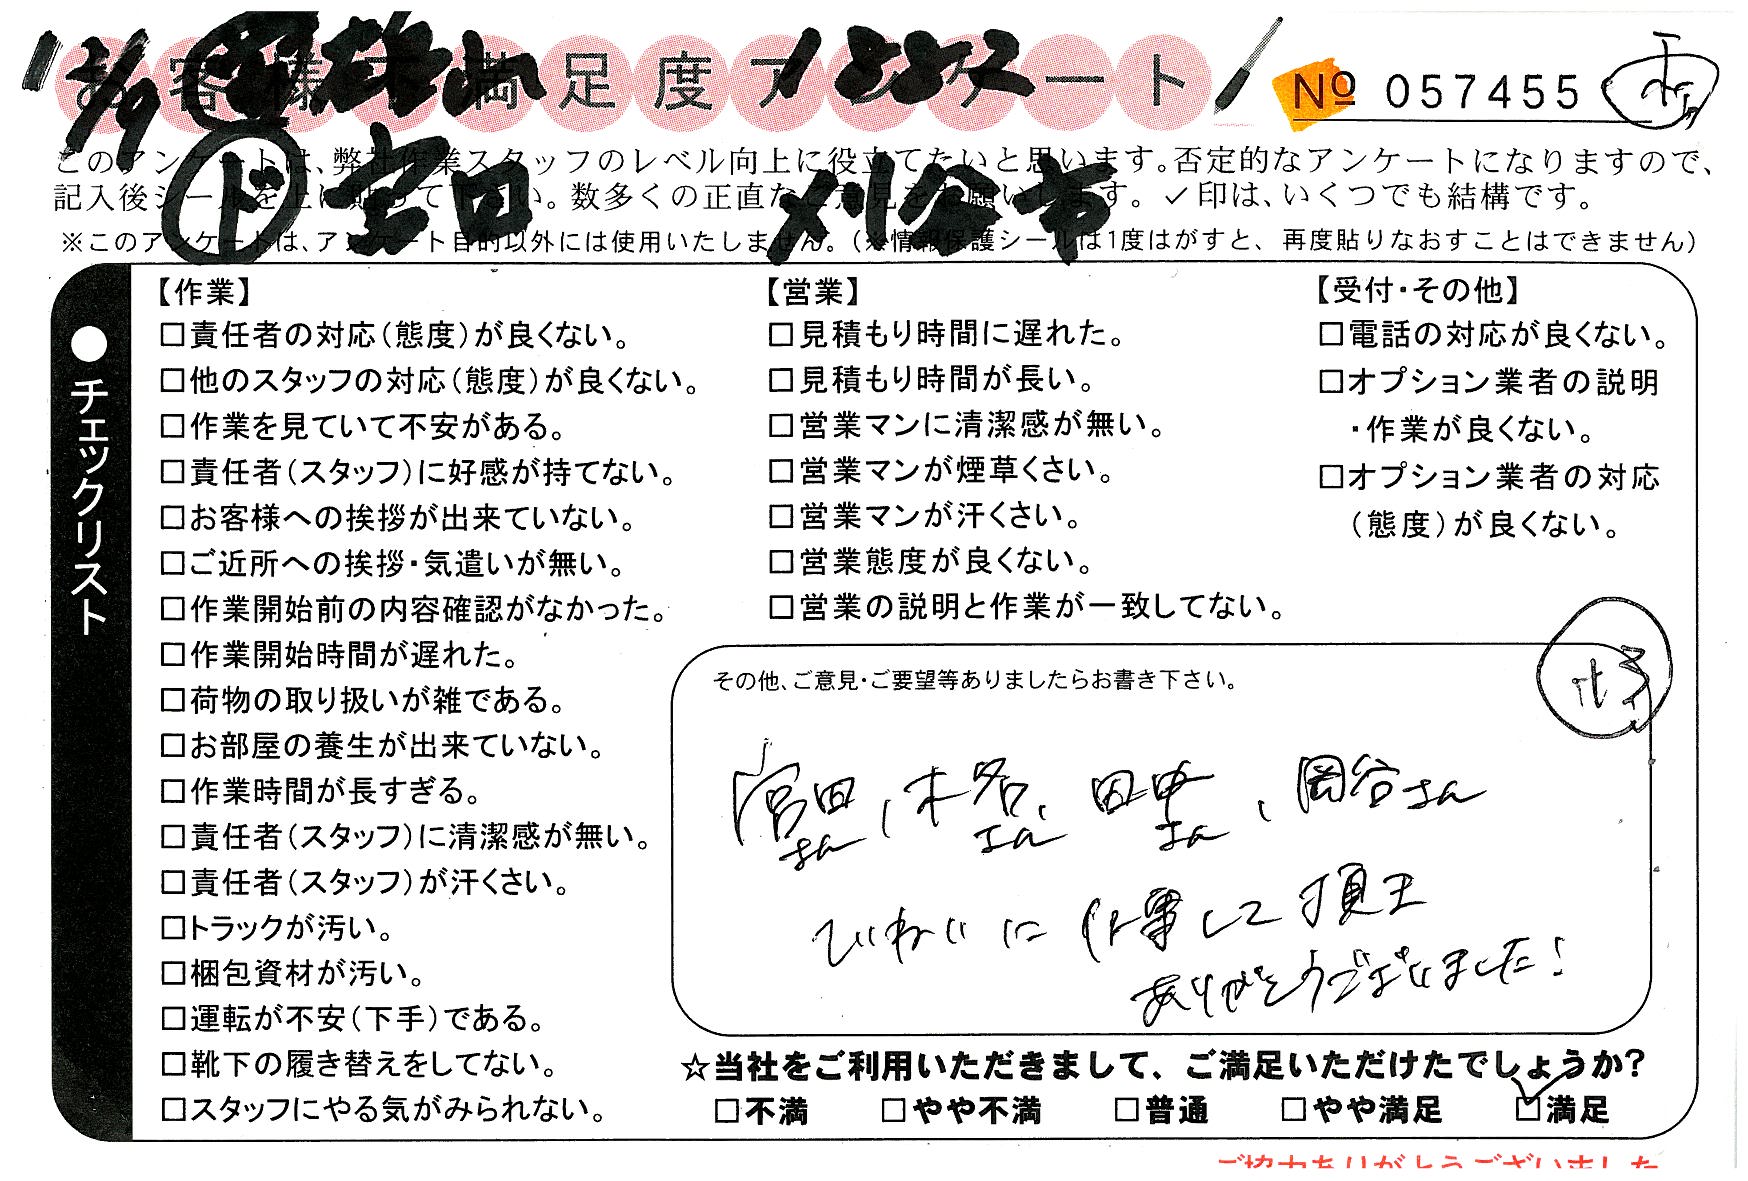 お客様不満足度アンケート
12/9
1882
№ 057455
このアンケートは、弊社作業スタッフのレベル向上に役立てたいと思います。否定的なアンケートになりますので、
記入後シールを上に貼って下さい。数多くの正直なご意見をお願いします。✓印は、いくつでも結構です。
ド 宮田 刈谷市
※このアンケートは、アンケート目的以外には使用いたしません。(※情報保護シールは1度はがすと、再度貼りなおすことはできません)
●チェックリスト
【作業】
□責任者の対応(態度)が良くない。
□他のスタッフの対応(態度)が良くない。
□作業を見ていて不安がある。
□責任者(スタッフ)に好感が持てない。
□お客様への挨拶が出来ていない。
□ご近所への挨拶・気遣いが無い。
□作業開始前の内容確認がなかった。
□作業開始時間が遅れた。
□荷物の取り扱いが雑である。
□お部屋の養生が出来ていない。
□作業時間が長すぎる。
□責任者(スタッフ)に清潔感が無い。
□責任者(スタッフ)が汗くさい。
□トラックが汚い。
□梱包資材が汚い。
□運転が不安(下手)である。
□靴下の履き替えをしてない。
□スタッフにやる気がみられない。
【営業】
□見積もり時間に遅れた。
□見積もり時間が長い。
□営業マンに清潔感が無い。
□営業マンが煙草くさい。
□営業マンが汗くさい。
□営業態度が良くない。
□営業の説明と作業が一致してない。
【受付・その他】
□電話の対応が良くない。
□オプション業者の説明
・作業が良くない。
□オプション業者の対応
(態度)が良くない。
その他、ご意見・ご要望等ありましたらお書き下さい。
宮田さん、木名さん、田中さん、岡谷さん
ていねいに作業して頂き
ありがとうございました！
☆当社をご利用いただきまして、ご満足いただけたでしょうか?
□不満 □やや不満 □普通 □やや満足 ☑満足
ご協力ありがとうございました